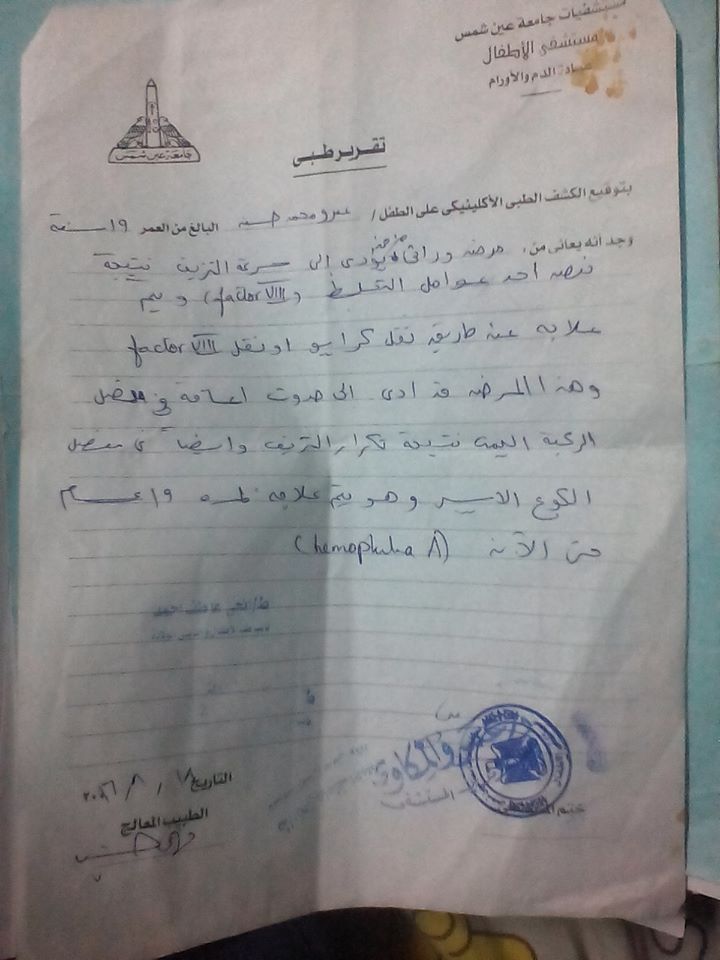 مستشفيات جامعة عين شمس
مستشفى الأطفال
عيادة الدم والأورام
جامعة عين شمس
تقرير طبى
بتوقيع الكشف الطبى الأكلينيكى على الطفل / عمرو محمد حسن البالغ من العمر ١٩ سنة
وجد انه يعانى من: مرض وراثى مزمن يؤدى الى سرعة النزيف نتيجة
نقص احد عوامل التجلط (factor VIII) ويتم
علاجه عن طريق نقل كرايو او نقل factor VIII
وهذا المرض قد ادى الى حدوث اعاقة فى مفصل
الركبة اليمنى نتيجة تكرار النزيف وايضاً فى مفصل
الكوع الايسر وهو يتم علاجه لمدة ١٩ عام
حتى الآن (hemophilia A)
التاريخ
الطبيب المعالج
ختم
المستشفى